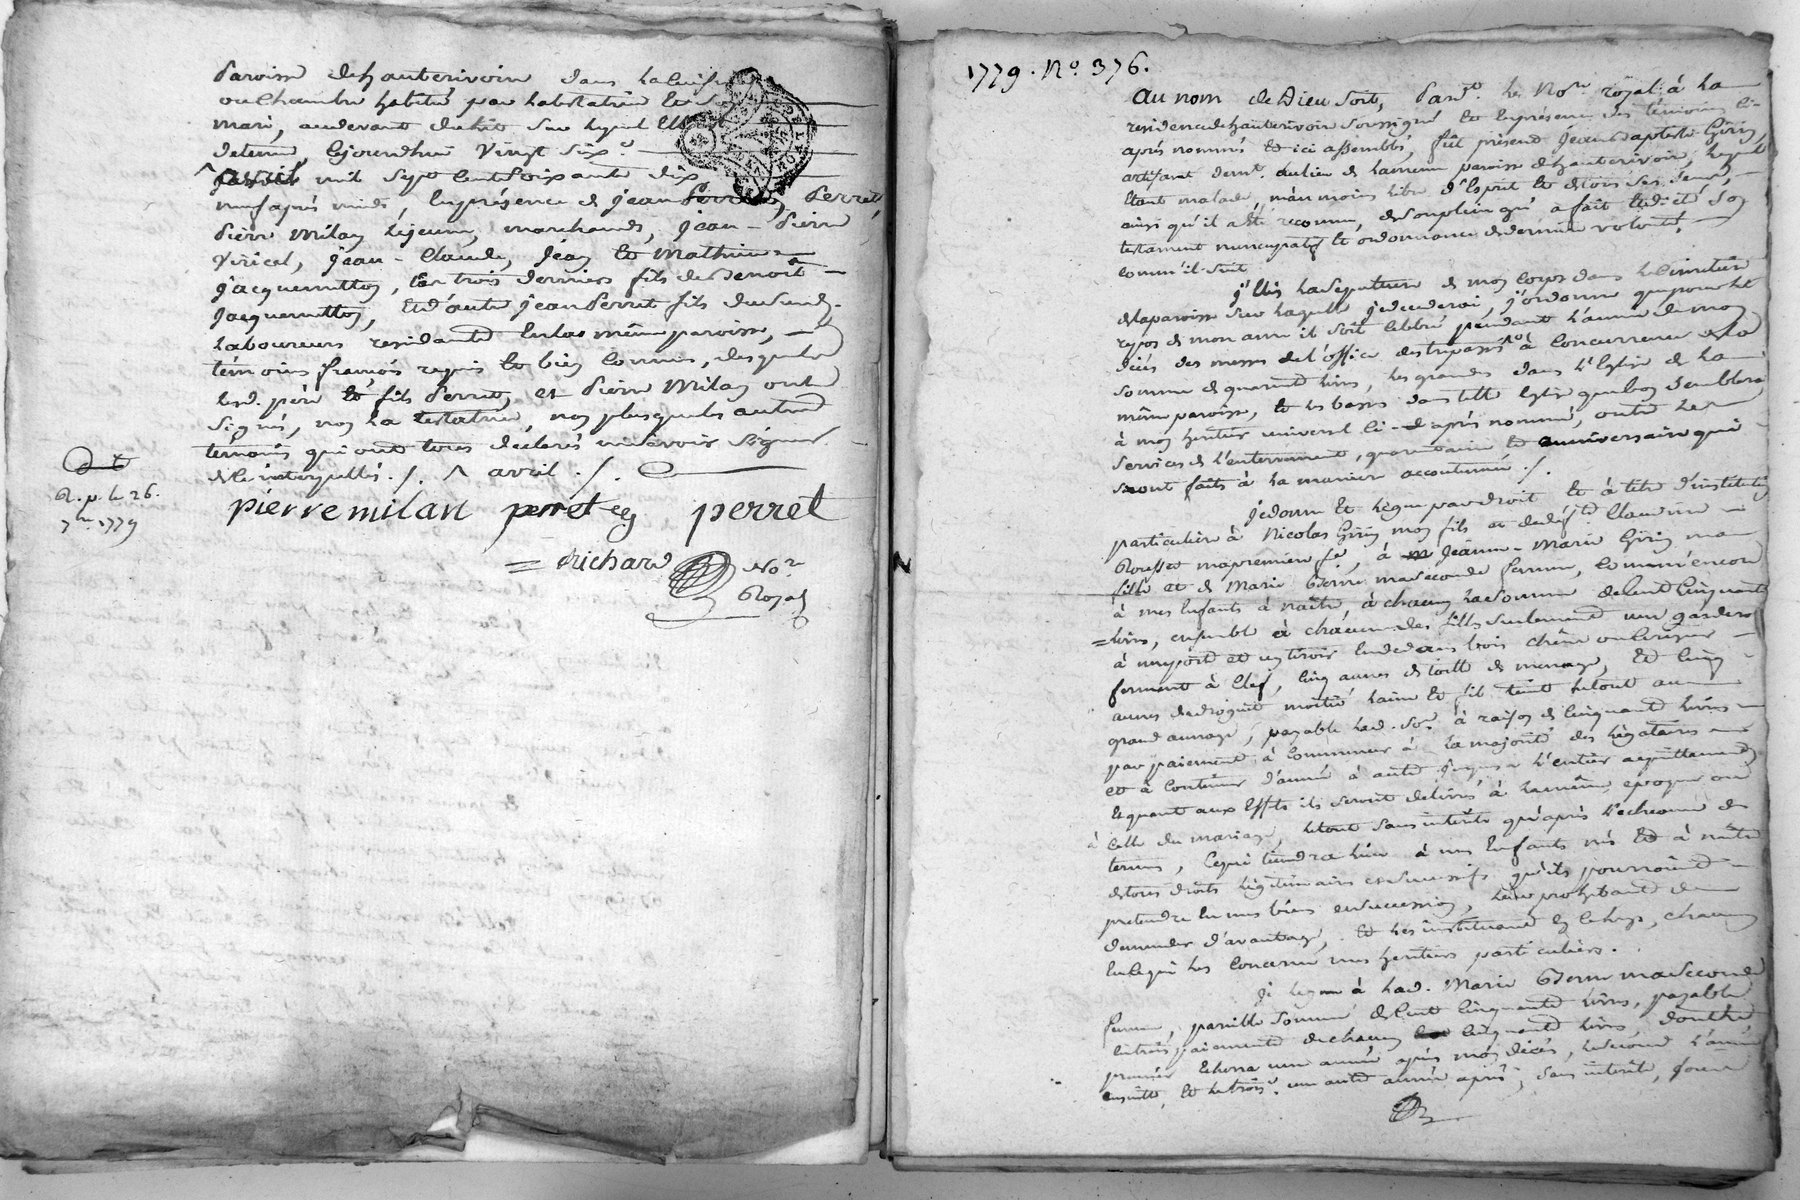 paroisse de hauterivoire dans la cuisine
ou chambre habitée par la testatrice et
mari, au devant du lit sur lequel elle est
detenue, cejourdhui vingt six.e
avril mil sept cent soixante dix
neuf après midi, en présence de jean Perret
Pierre Milan le jeune, marchands, jean-Pierre
Vericel, jean-Claude, jean et Mathieu
jacquemetton, les trois derniers fils de Benoit
jacquemetton, et d'autre jean Perret fils dususd.
laboureurs residants en lad. même paroisse,
témoins français requis et bien connus, desquels
lesd. père et fils Perret, et Pierre Milan ont
signés, non la testatrice, non plus que les autres
témoins qui ont tous déclarés ne savoir signer
de ce interpellés ./. ^ avril ./.
R. p. le 26.
7bre 1779
pierre milan perret perret
= Richard Nore
Royal
1779. No. 376.
Au nom de Dieu soit, Pardt. le Nore. royal à la
residence de hauterivoire soussigné et en présence des témoins ci-
après nommés et ici assemblés, fut présent Jean Baptiste Girin,
artisant demt. au lieu de paroisse de hauterivoire, lequel
étant malade, néanmoins libre d'esprit et de tous ses sens,
ainsi qu'il a été reconnu, de son plein gré a fait et dicté son
testament nuncupatif et ordonnance de dernière volonté,
comm'il suit
j'Elis la sepulture de mon corps dans le cimetière
de la paroisse sur laquelle je decederai, j'ordonne que pour le
repos de mon ame il soit celebré pendant l'année de mon
décés des messes de l'office des trepassés à concurrence de la
somme de quarante livres, les grandes dans l'Eglise de la
même paroisse, et les basses dans telle Eglise que bon semblera
à mon heritier universel ci-après nommé, outre les
services de l'enterrement, quarantaine et anniversaire qui
seront faits à la manière accoutumée ./.
je donne et lègue par droit et à titre d'institution
particulière à Nicolas Girin mon fils et de def.te Claudine
Rousset ma première fe., à Jeanne-Marie Girin ma
fille et de Marie ma seconde femme, comm'encore
à mes enfants à naitre, à chacun la somme de cent cinquante
=livres, ensemble à chacune des filles seulement une garderobe
à une porte et un tiroir en dedans bois chêne ou cerisier
fermant à clef, cinq aunes de toille de menage, et cinq
aunes de droguet moitié laine et fil teint le tout au
grand aunage, payable lad. som. à raison de cinquante livres
par paiement à commencer à la majorité des légataires
et à continuer d'année à autre jusqu'à l'entier acquittement
le quant aux effets ils seront délivrés à la même époque ou
à celle du mariage, le tout sans intérêts qu'après l'échéance des
termes, ce qui tiendra lieu à mes enfants nés et à naitre
de tous droits légitimaires et successifs qu'ils pourroient
pretendre en mes biens et succession, leur prohibant de
demander d'avantage, et les instituant en ce legs, chacun
en ce qui les concerne mes heritiers particuliers.
je legue à lad. Marie ma seconde
femme, pareille somme de cent cinquante livres, payable
en trois paiements de chacun cinquante livres, dont le
premier echerra une année après mon décès, le second l'année
ensuitte, et le trois.e une autre année après, sans intérêts, pour